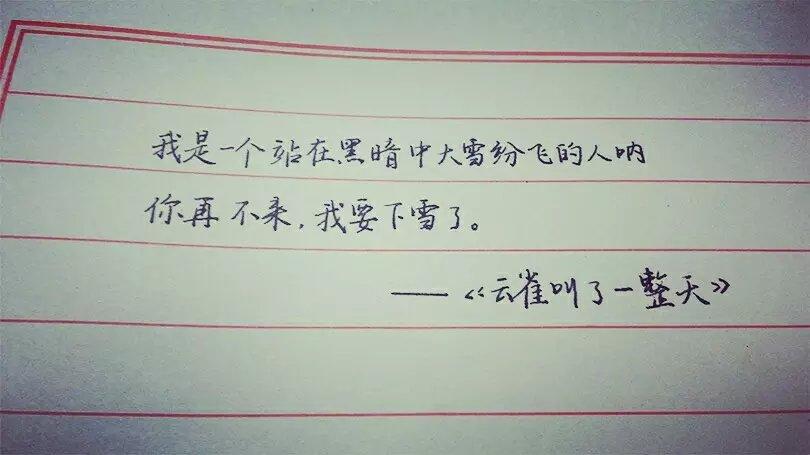 我是一个站在黑暗中大雪纷飞的人呐
你再不来，我要下雪了。
——《云雀叫了一整天》